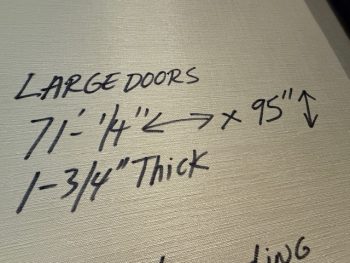 LARGE DOORS
71'-1/4" ↔ x 95" ↕
1-3/4" Thick